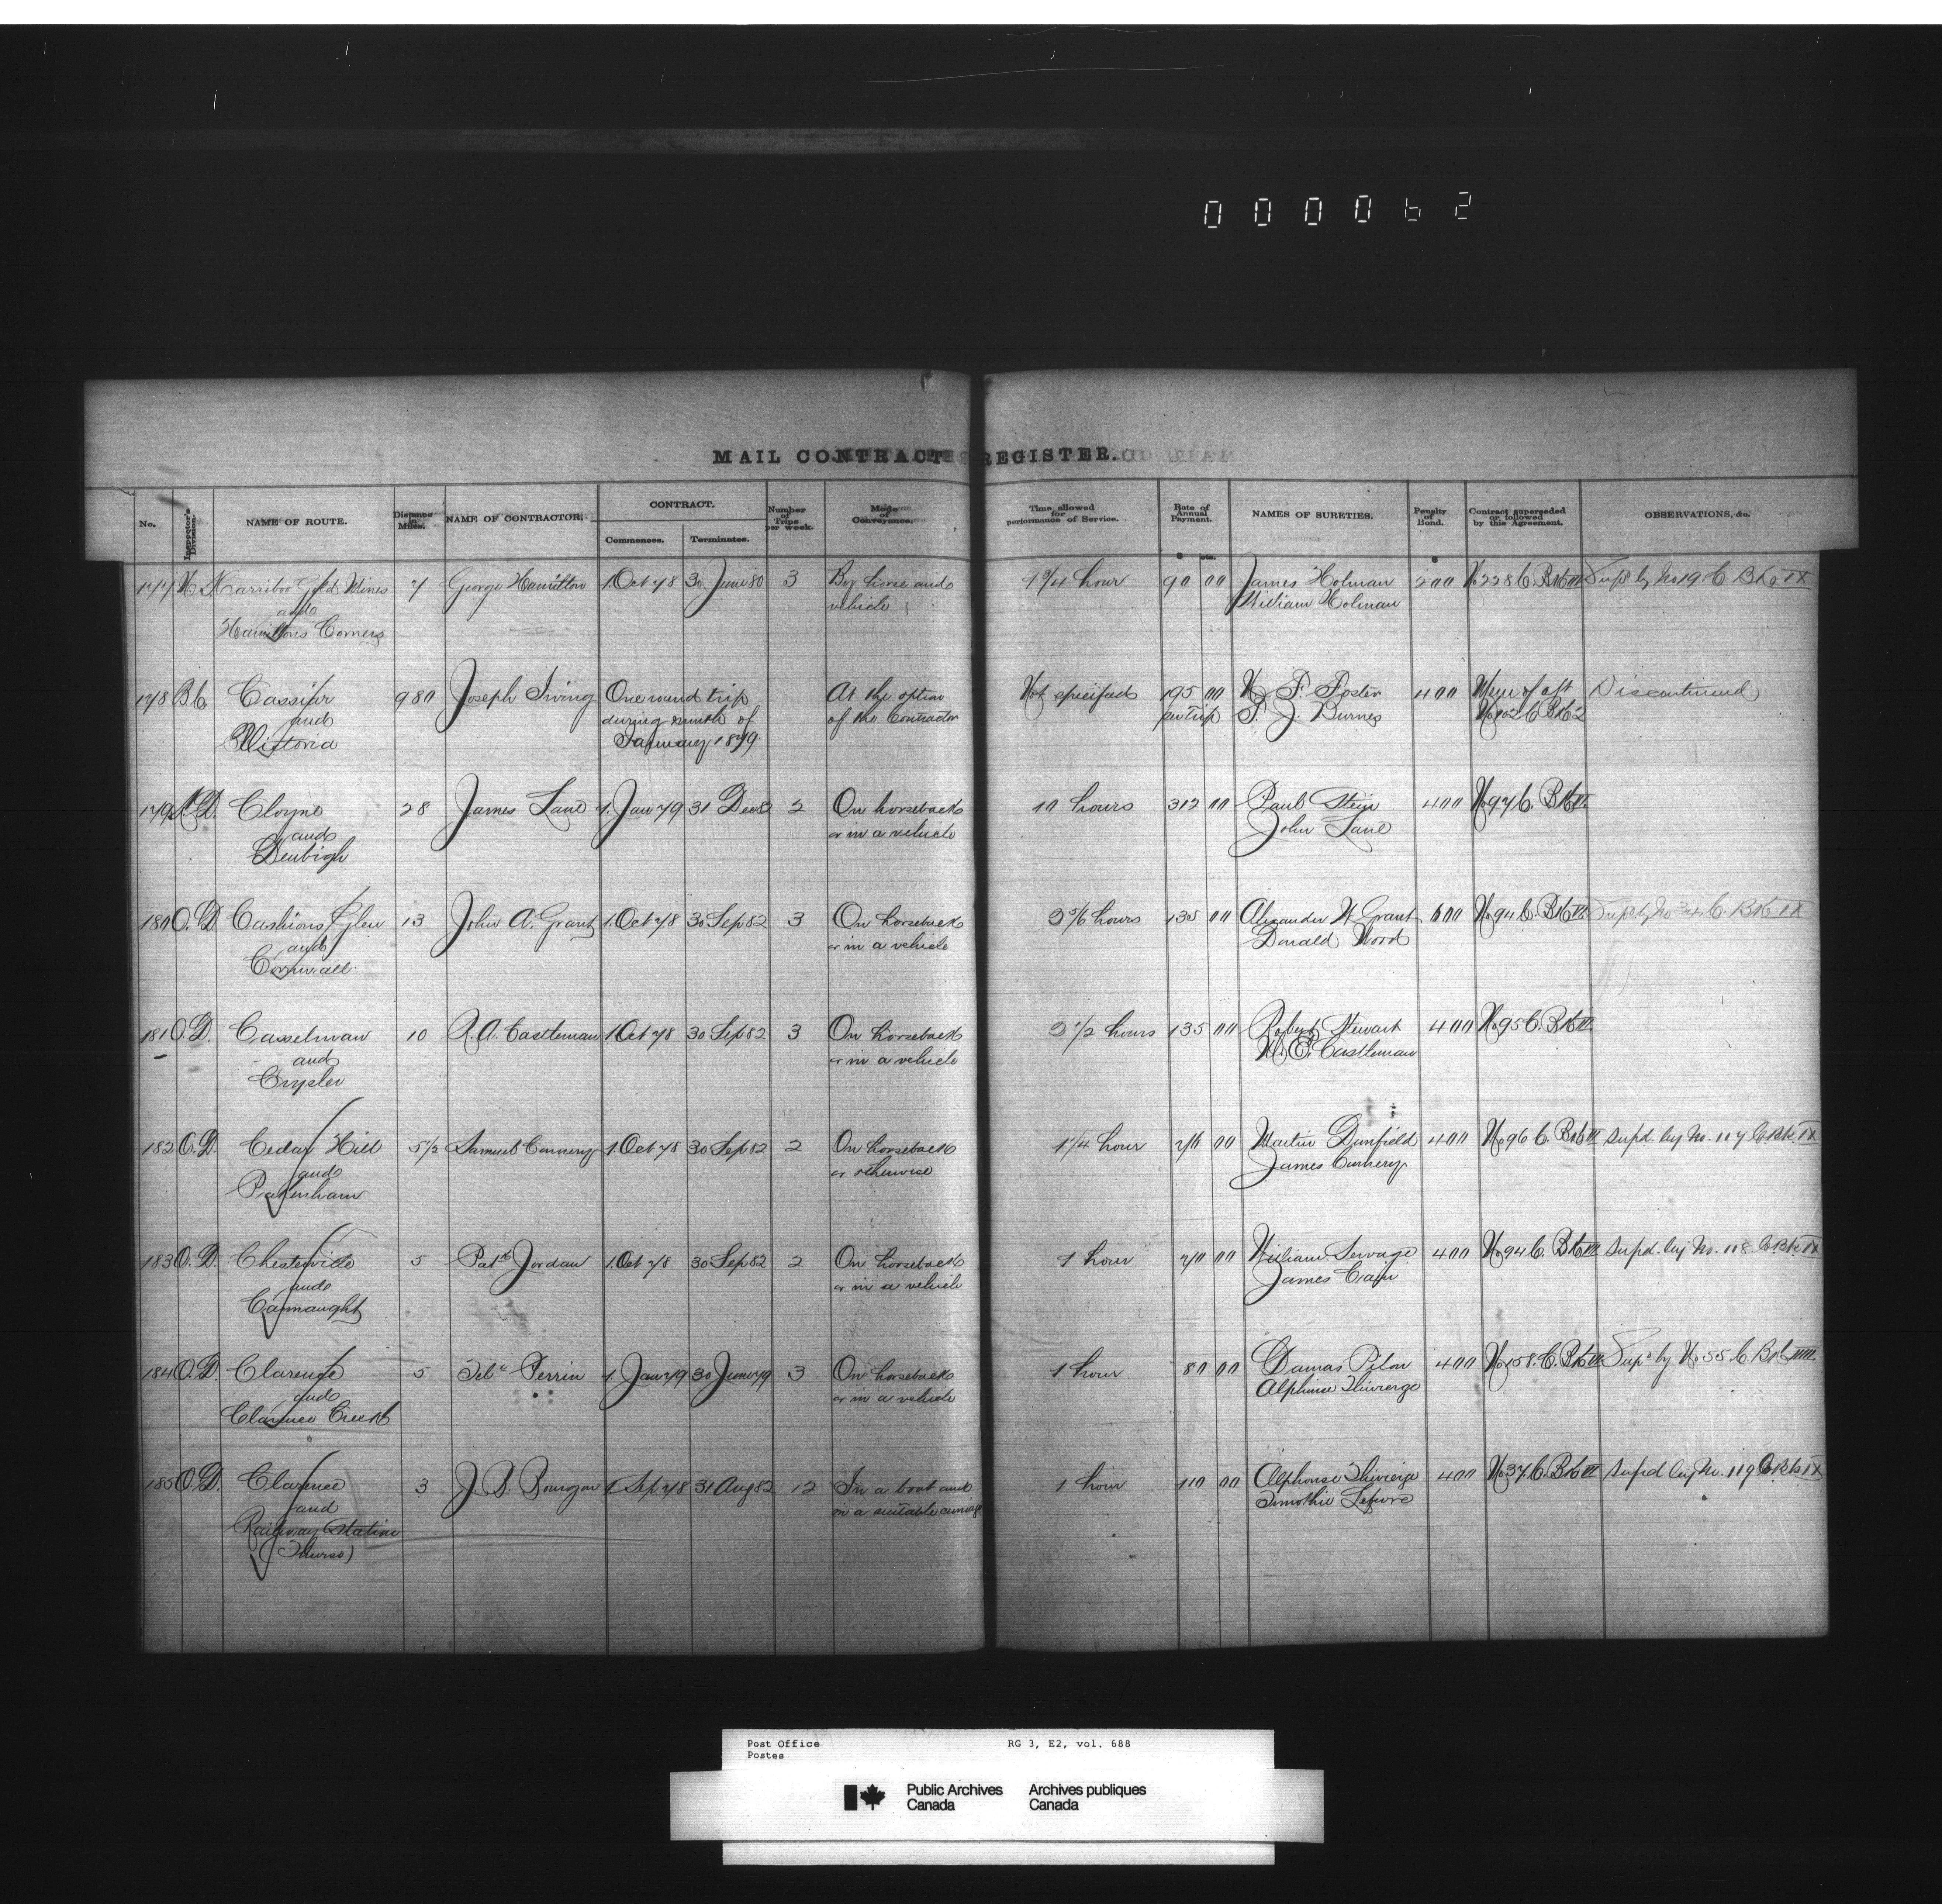 000062
MAIL CONTRACT REGISTER.
No. Inspector's Division. NAME OF ROUTE. Distance in Miles. NAME OF CONTRACTOR. CONTRACT. Commences. Terminates. Number of Trips per week. Mode of Conveyance. Time allowed for performance of Service. Rate of Annual Payment. NAMES OF SURETIES. Penalty of Bond. Contract superseded or followed by this Agreement. OBSERVATIONS, &c.
$ cts.
177 N.S. Carriboo Gold Mines 7 George Hamilton 1 Oct 78 30 June 80 3 By horse and 1 3/4 hour 90 00 James Holman 200 No 228 C. Bk III Supd by No 19 C Bk IX
and vehicle William Holman
Hamiltons Corners
178 B.C. Cassiar 980 Joseph Irving One round trip At the option Not specified 195 00 400 Discontinued
and during month of of the Contractor per trip
Victoria January 1879
179 Cloyne 28 James Lane 1 Jan 79 31 Dec 82 2 On horseback 10 hours 312 00 Paul Stein 400 No 97 C. Bk II
and or in a vehicle John Lane
Denbigh
180 O.D. Cashions Glen 13 John A. Grant 1 Oct 78 30 Sep 82 3 On horseback 3 5/6 hours 135 00 Alexander W Grant 600 No 94 C. Bk II Supd by No 34 C. Bk IX
and or in a vehicle Donald Wood
Cornwall
181 O.D. Casselman 10 R. A. Castleman 1 Oct 78 30 Sep 82 3 On horseback 3 1/2 hours 135 00 Robert Stewart 400 No 95 C. Bk II
and or in a vehicle W. E. Castleman
Crysler
182 O.D. Cedar Hill 5 1/2 Samuel Connery 1 Oct 78 30 Sep 82 2 On horseback 1 1/4 hour 00 Martin Dunfield 400 No 96 C. Bk II Supd by No. 117 C Bk IX
and or otherwise James Connery
Pakenham
183 O.D. Chesterville 5 Patk Jordan 1 Oct 78 30 Sep 82 2 On horseback 1 hour 70 00 William Servage 400 No 94 C. Bk II Supd by No. 118 C Bk IX
and or in a vehicle James Cain
Cannaught
184 O.D. Clarence 5 Perrin 1 Jany 79 30 June 79 3 On horseback 1 hour 80 00 Damas Pilon 400 No 158 C. Bk III Supd by No 55 C. Bk IIII
and or in a vehicle Alphonse Thivierge
Clarence Creek
185 O.D. Clarence 3 J. B. Bourgon 1 Sep 78 31 Aug 82 12 In a boat and 1 hour 110 00 Alphonse Thivierge 400 No 37 C. Bk II Supd by No. 119 C Bk IX
and in a suitable carriage Timothie Lefevre
Railway Station
(Thurso)
Post Office RG 3, E2, vol. 688
Postes
Public Archives Archives publiques
Canada Canada